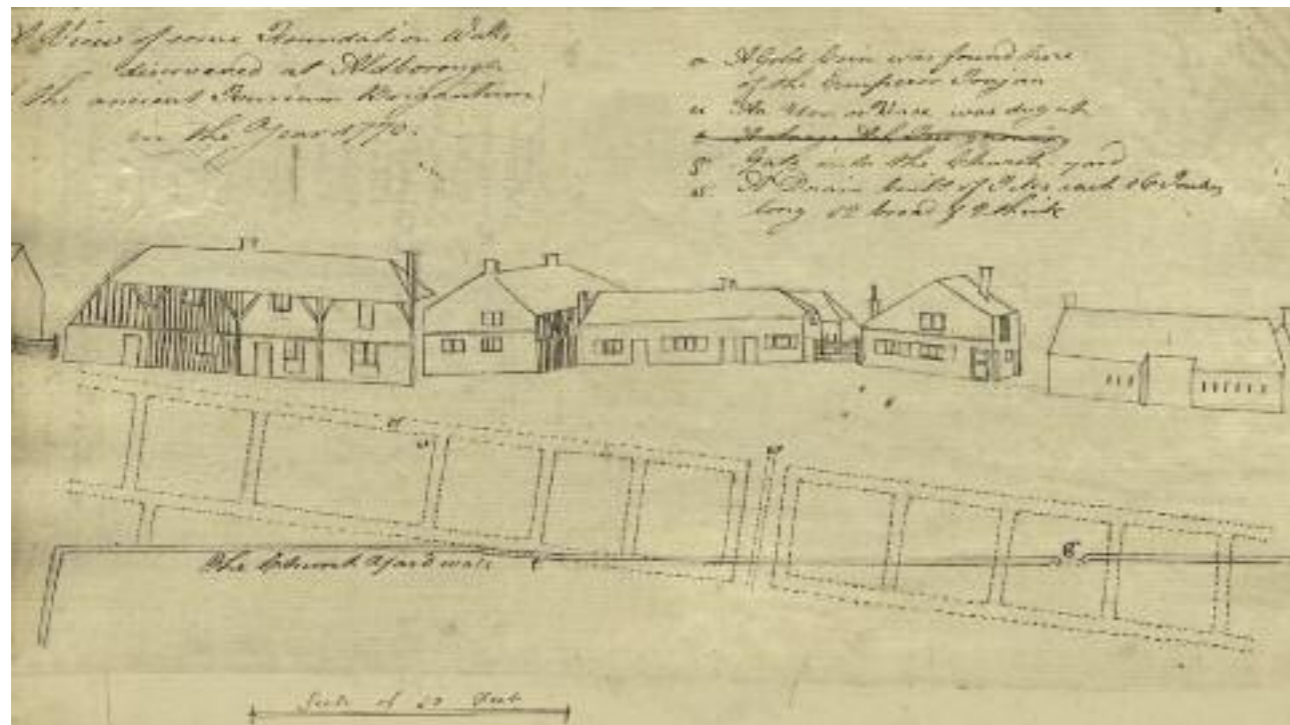 A View of some Foundation Walls
discovered at Aldborough
(the ancient Isurium Brigantum)
in the Year 1770.
a A Gold Coin was found here
of the Emperor Trajan
u An Urn or Vase was dug up
g Gate into the Church yard
A Drain built of Tiles each 16 Inches
long 12 broad & 2 thick
u
g
The Church Yard wall
Scale of 20 Feet